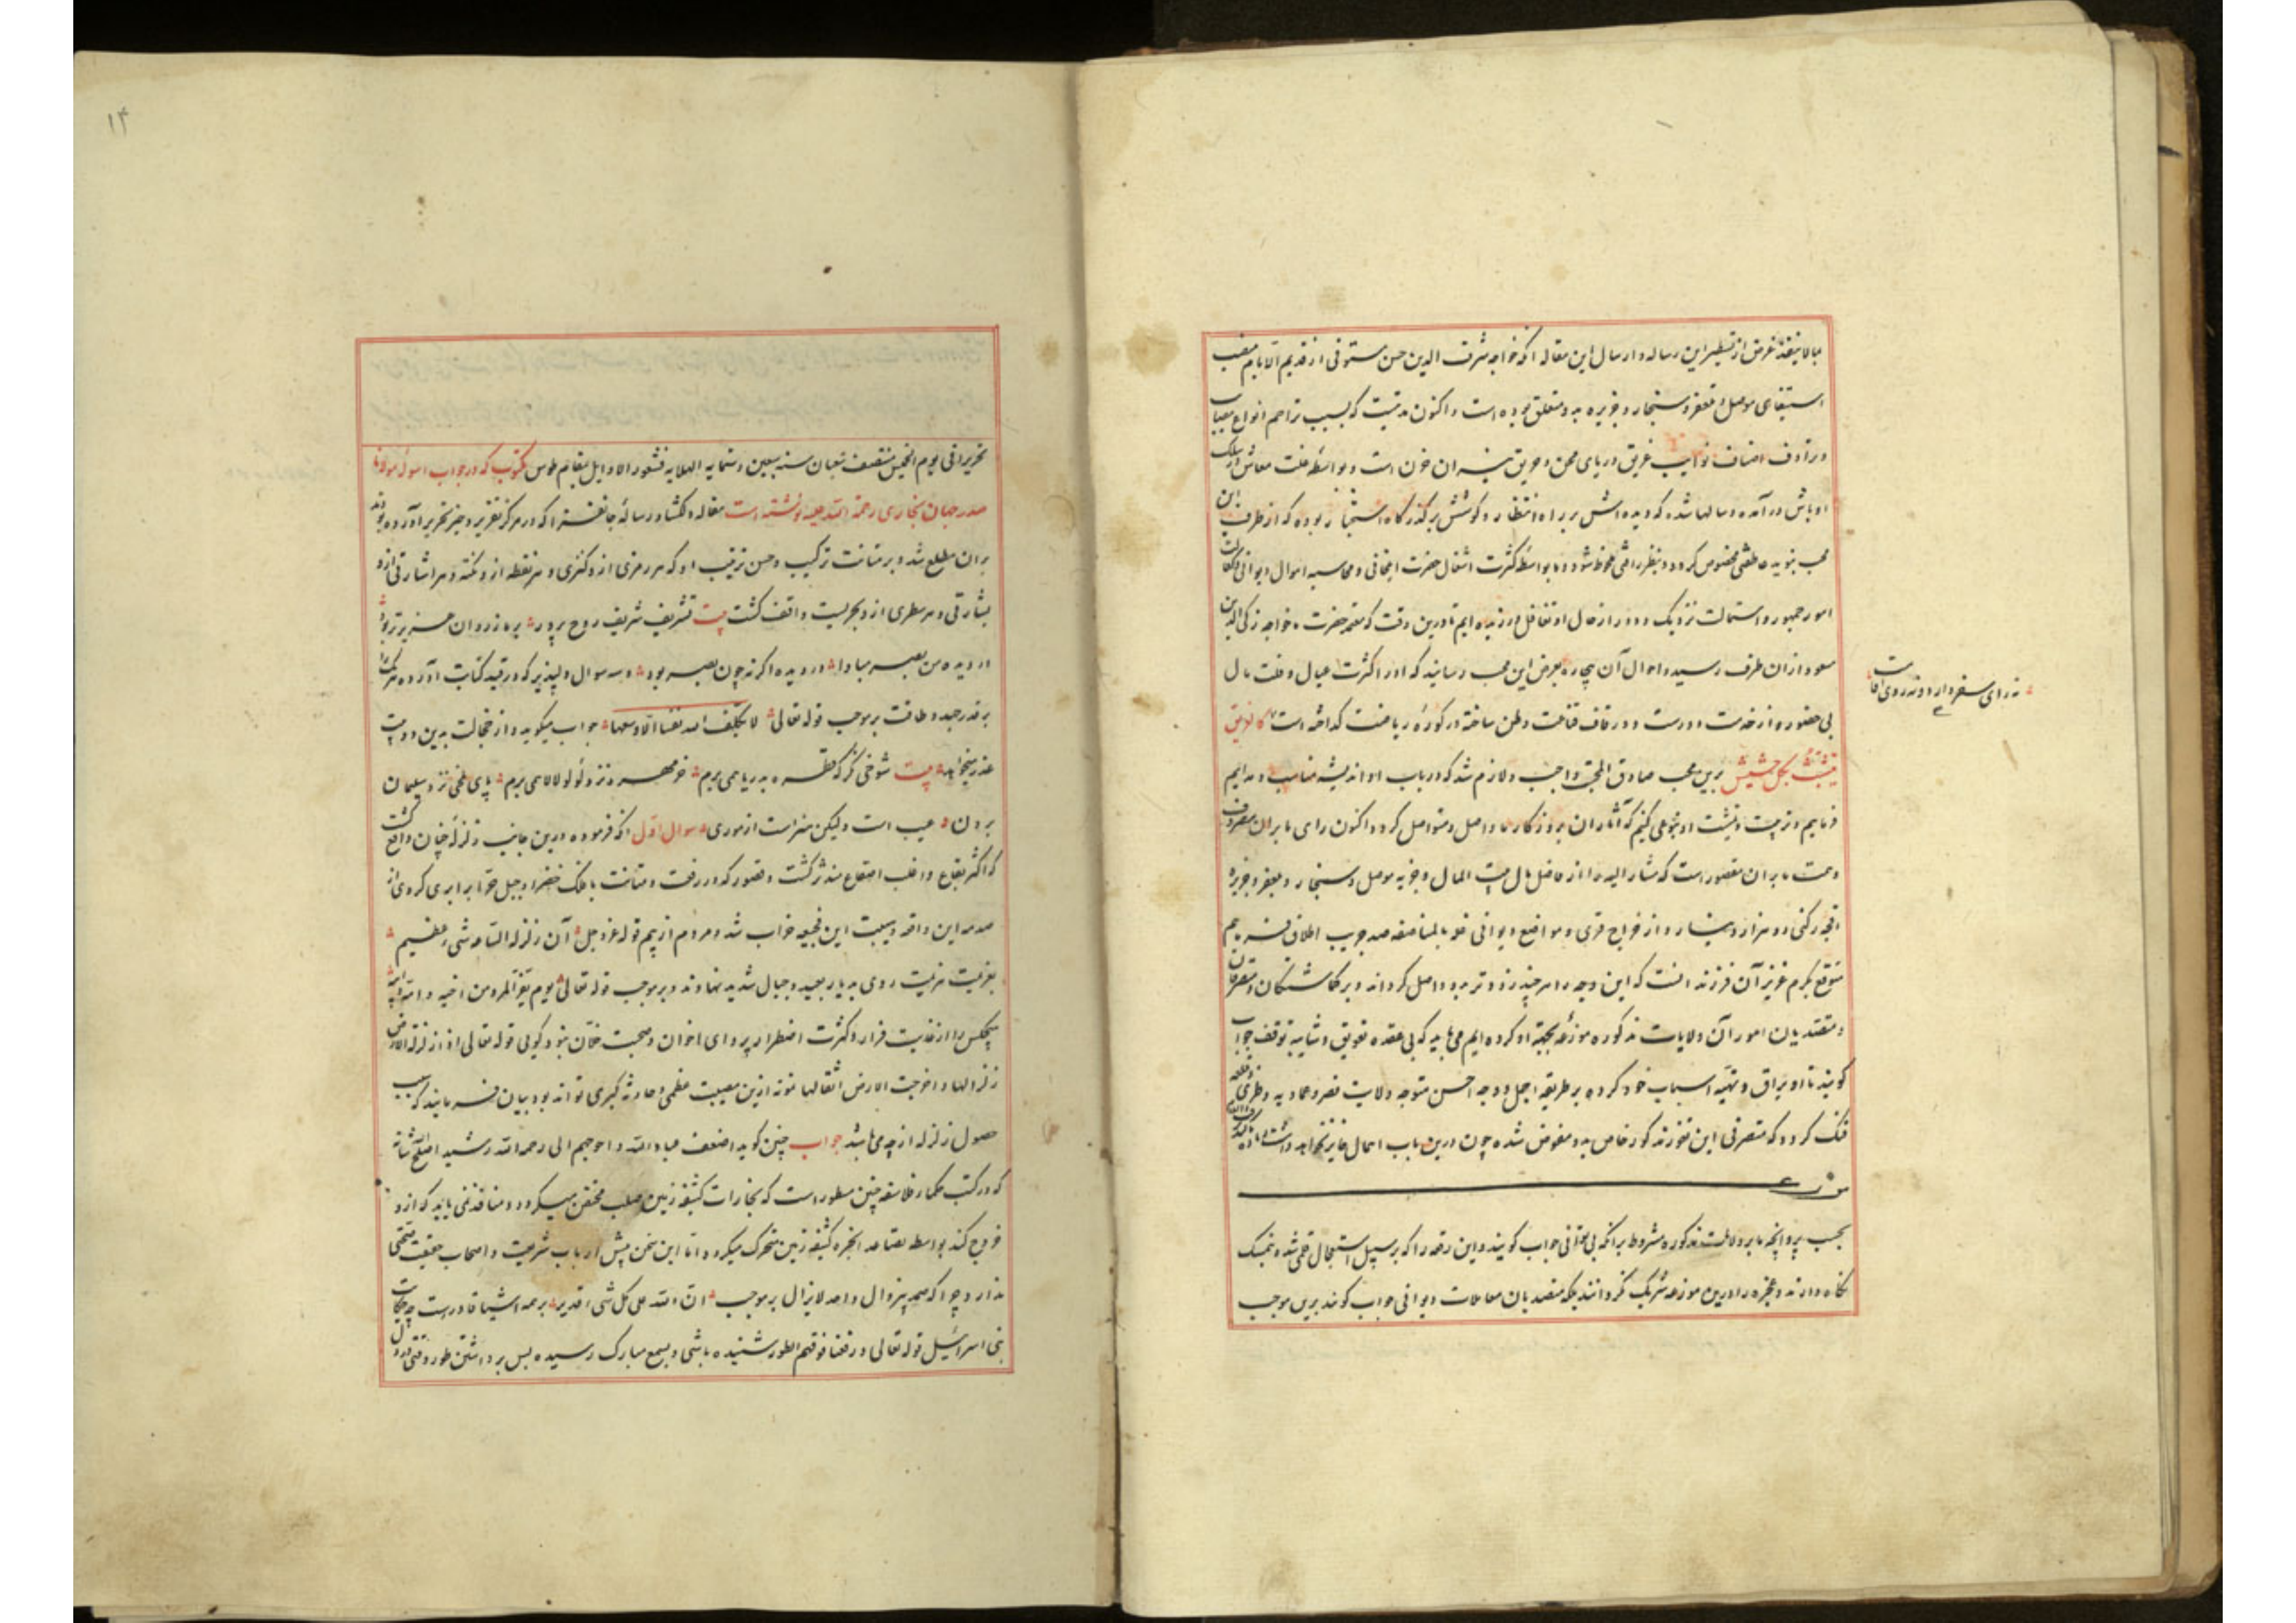 غرض از تسطیر این رساله و ارسال این مقاله آنکه خواجه شرف الدین حسن مستوفی از قدیم الایام منصب
استیفای موصل و سنجار و جزیره بدو متعلق بوده است و اکنون مدتیست که بسبب تزاحم انواع
و ترادف اصناف نوایب غریق دریای محن و حریق نیران حزن است و بواسطه قلت معاش در سلک
اوباش در آمده و سالها شده که دیده اش بر راه انتظار و گوشش بر گذرگاه بوده که از طرف این
محب بنوید عاطفتی مخصوص گردد و بنظر رأفتی ملحوظ شود و ما بواسطه کثرت اشغال حضرت ایلخانی و محاسبه اموال دیوانی
امور جمهور و استمالت نزدیک و دور از حال او تغافل ورزیده ایم تا درین وقت که حضرت خواجه زکی الدین
مسعود از ان طرف رسید و احوال آن بیچاره بعرض این محب رسانید که او از اکثرت عیال و قلت مال
نه رای سفر دارد و نه روی اقامت
بی حضور از خدمت و در قاف قناعت وطن ساخته در کوره ریاضت گداخته است کالغریق
یتشبث بکل حشیش برین محب صادق المحبة واجب و لازم شد که در باب او اندیشه مناسب
فرماییم و تربیت و تمشیت او بنوعی کنیم که آثار ان بروزگار ما واصل و متواصل گردد و اکنون رای ما بران مصروف
و همت ما بران مقصور است که مشار الیه را از حاصل مال بیت المال و جزیه موصل و سنجار و جزیره
دو هزار دینار و از خراج قری و مواضع دیوانی غله بالمناصفه صد جریب اطلاق فرماییم
متوقع بکرم عزیز آن فرزند انست که این وجه را هر چند زودتر بدو واصل گردانه و بر گماشتگان و متصرفان
و متقلدیان امور آن ولایات مذکوره موزعه بجهة او کرده ایم می باید که بی عقده تعویق و شایبه توقف جواب
گویند تا او یراق و تهیه اسباب خود کرده بر طریقه اجمل و وجه احسن متوجه ولایت
گردد که متصرفی این ثغر مذکور خاص بدو مفوض شده چون درین باب اهمال جایز نخواهد داشت
موزع
بحسب پروانچه ما بر ولایت مذکوره مشروط برانکه بی توانی جواب گویند و این رقعه را که بر سبیل استعجال قلمی شد و تمسک
نگاه دارند و عجزه را درین موزعه شریک نگردانند بلکه متصدیان معاملات دیوانی جواب گویند برین موجب
۱۴
تحریرا فی یوم الخمیس منتصف شعبان سنه تسعین و ستمایه الهلالیه بمقام طوس مکتوب که در جواب اسوله مولانا
صدر جهان بخاری رحمة الله علیه نوشته است مقاله دلگشا و رساله جانفزا که در مرکز تقریر و حیز تحریر آورده بودند
بران مطلع شد و بر متانت ترکیب و حسن ترتیب او که هر رمزی ازو کنزی و هر نقطه ازو نکته و هر اشارتی ازو
بشارتی و هر سطری ازو بحریست واقف گشت بیت تشریف شریف روح پرور
از دیده من بصر مبادا در دیده اگر نه چون بصر بود و سه سوال دلپذیر که در قید کتابت آورده
بقدر جهد و طاقت بر موجب قوله تعالی لا یکلف الله نفسا الا وسعها جواب میگوید و از خجالت بدین دو بیت
عذر میخواهد بیت شوخی نگر که قطره بدریا همی برم خرمهره نزد لؤلؤ لالا همی برم پای ملخی نزد سلیمان
بردن عیب است ولیکن هنراست از موری سوال اول آنکه فرموده درین جانب زلزله چنان واقع گشت
که اکثر بقاع و اغلب اصقاع مندرس گشت و قصور که در رفعت و متانت با فلک خضرا و جبل حرا برابری کردی از
صدمه این واقعه و هیبت این فجیعه خراب شد و مردم از بیم قوله عز و جل ان زلزلة الساعة شی عظیم
بعزیمت هزیمت روی بدیار بعید و جبال شدید نهادند و بر موجب قوله تعالی یوم یفر المرء من اخیه و امه و ابیه
هیچکس را از غایت فرار و کثرت اضطرار پروای اخوان و صحبت خلان نبود گویی قوله تعالی اذا زلزلت الارض
زلزالها و اخرجت الارض اثقالها نمونه ازین مصیبت عظمی و حادثه کبری تواند بود بیان فرمایند که سبب
حصول زلزله از چه می باشد جواب چنین گوید اضعف عباد الله و احوجهم الی رحمة الله رشید اصلح الله شانه
که در کتب حکما و فلاسفه چنین مسطور است که بخارات کثیفه زمین صلب محتقن میگردد و منافذ نمی یابد که ازو
خروج کند بواسطه تصاعد ابخره کثیفه زمین متحرک میگردد و اما این سخن پیش ارباب شریعت و اصحاب حقیقت تحققی
ندارد چرا که صمد بیزوال و احد لایزال بر موجب ان الله علی کل شی قدیر بر همه اشیا قادرست چه حکایت
بنی اسرائیل قوله تعالی و رفعنا فوقهم الطور شنیده باشی و بسمع مبارک رسیده پس برداشتن طور وقتی